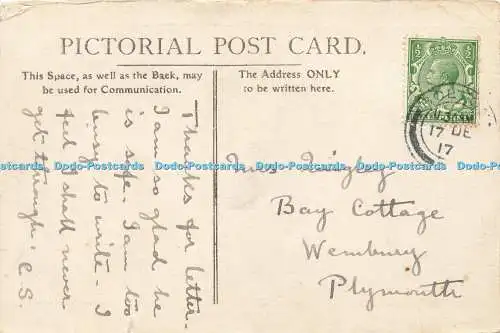 PICTORIAL POST CARD.
This Space, as well as the Back, may
be used for Communication.
The Address ONLY
to be written here.
Thanks for letter.
I am so glad he
is safe. I am too
busy to write - I
feel I shall never
get through. C.S.
Mrs
Bay Cottage
Wembury
Plymouth
17 DE
17
Dodo-Postcards Dodo-Postcards Dodo-Postcards Dodo-Postcards Dodo-Postcards